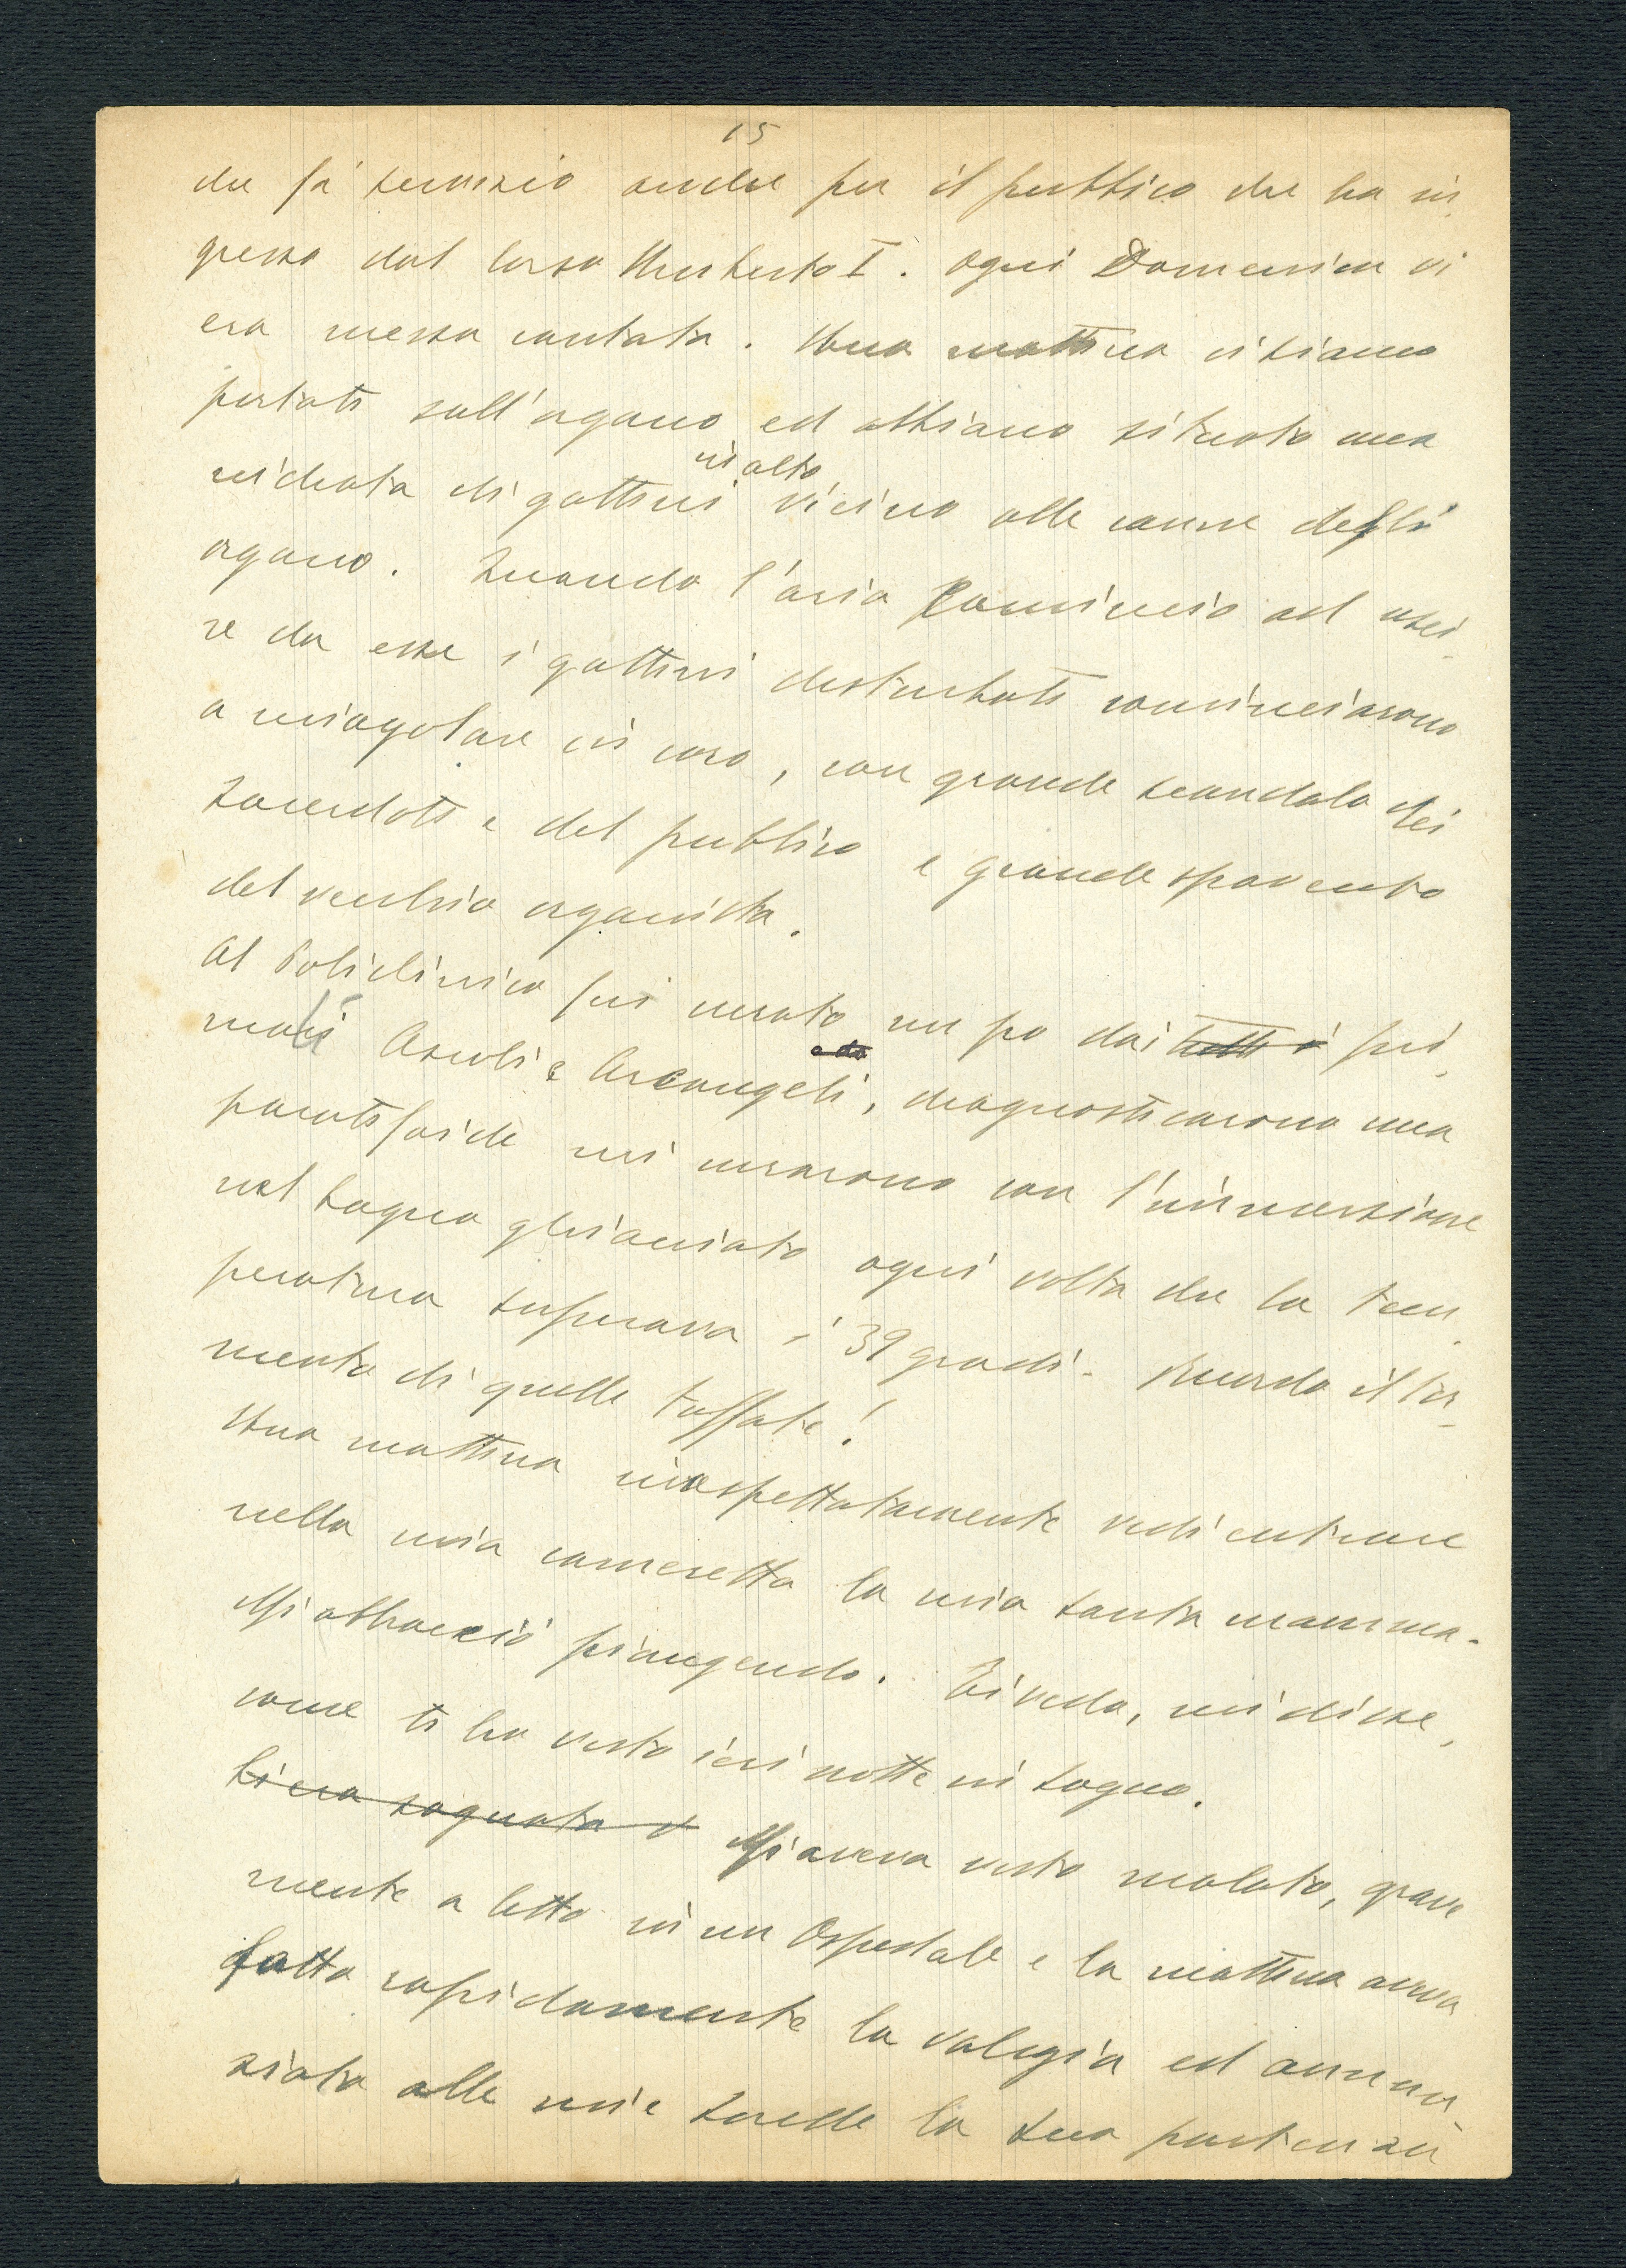 15
che fa servizio anche per il pubblico che ha in-
gresso dal Corso Umberto I. Ogni Domenica vi
era messa cantata. Una mattina ci siamo
portati sull'organo ed abbiamo situato una
nidiata di gattini in alto vicino alle canne degli
organo. Quando l'aria cominciò ad usci-
re da esse i gattini disturbati cominciarono
a miagolare in coro, con grande scandalo dei
sacerdoti e del pubblico e grande spavento
del vecchio organista.
Al Policlinico fui curato un po dai tutti i pri-
mari Ascoli e e da Arcangeli, diagnosticarono una
paratifoide mi curarono con l'immersione
nel bagno ghiacciato ogni volta che la tem-
peratura superava i 39 gradi. Ricordo il tor-
mento di quelle tuffate!
Una mattina inaspettatamente vedi entrare
nella mia cameretta la mia santa mamma.
Mi abbracciò piangendo. Ti vedo, mi disse,
come ti ho visto ieri notte in sogno.
Si era sognata Mi aveva visto malato, grave
mente a letto in un Ospedale e la mattina aveva
fatto rapidamente la valigia ed annun-
ziato alle mie sorelle la sua partenza